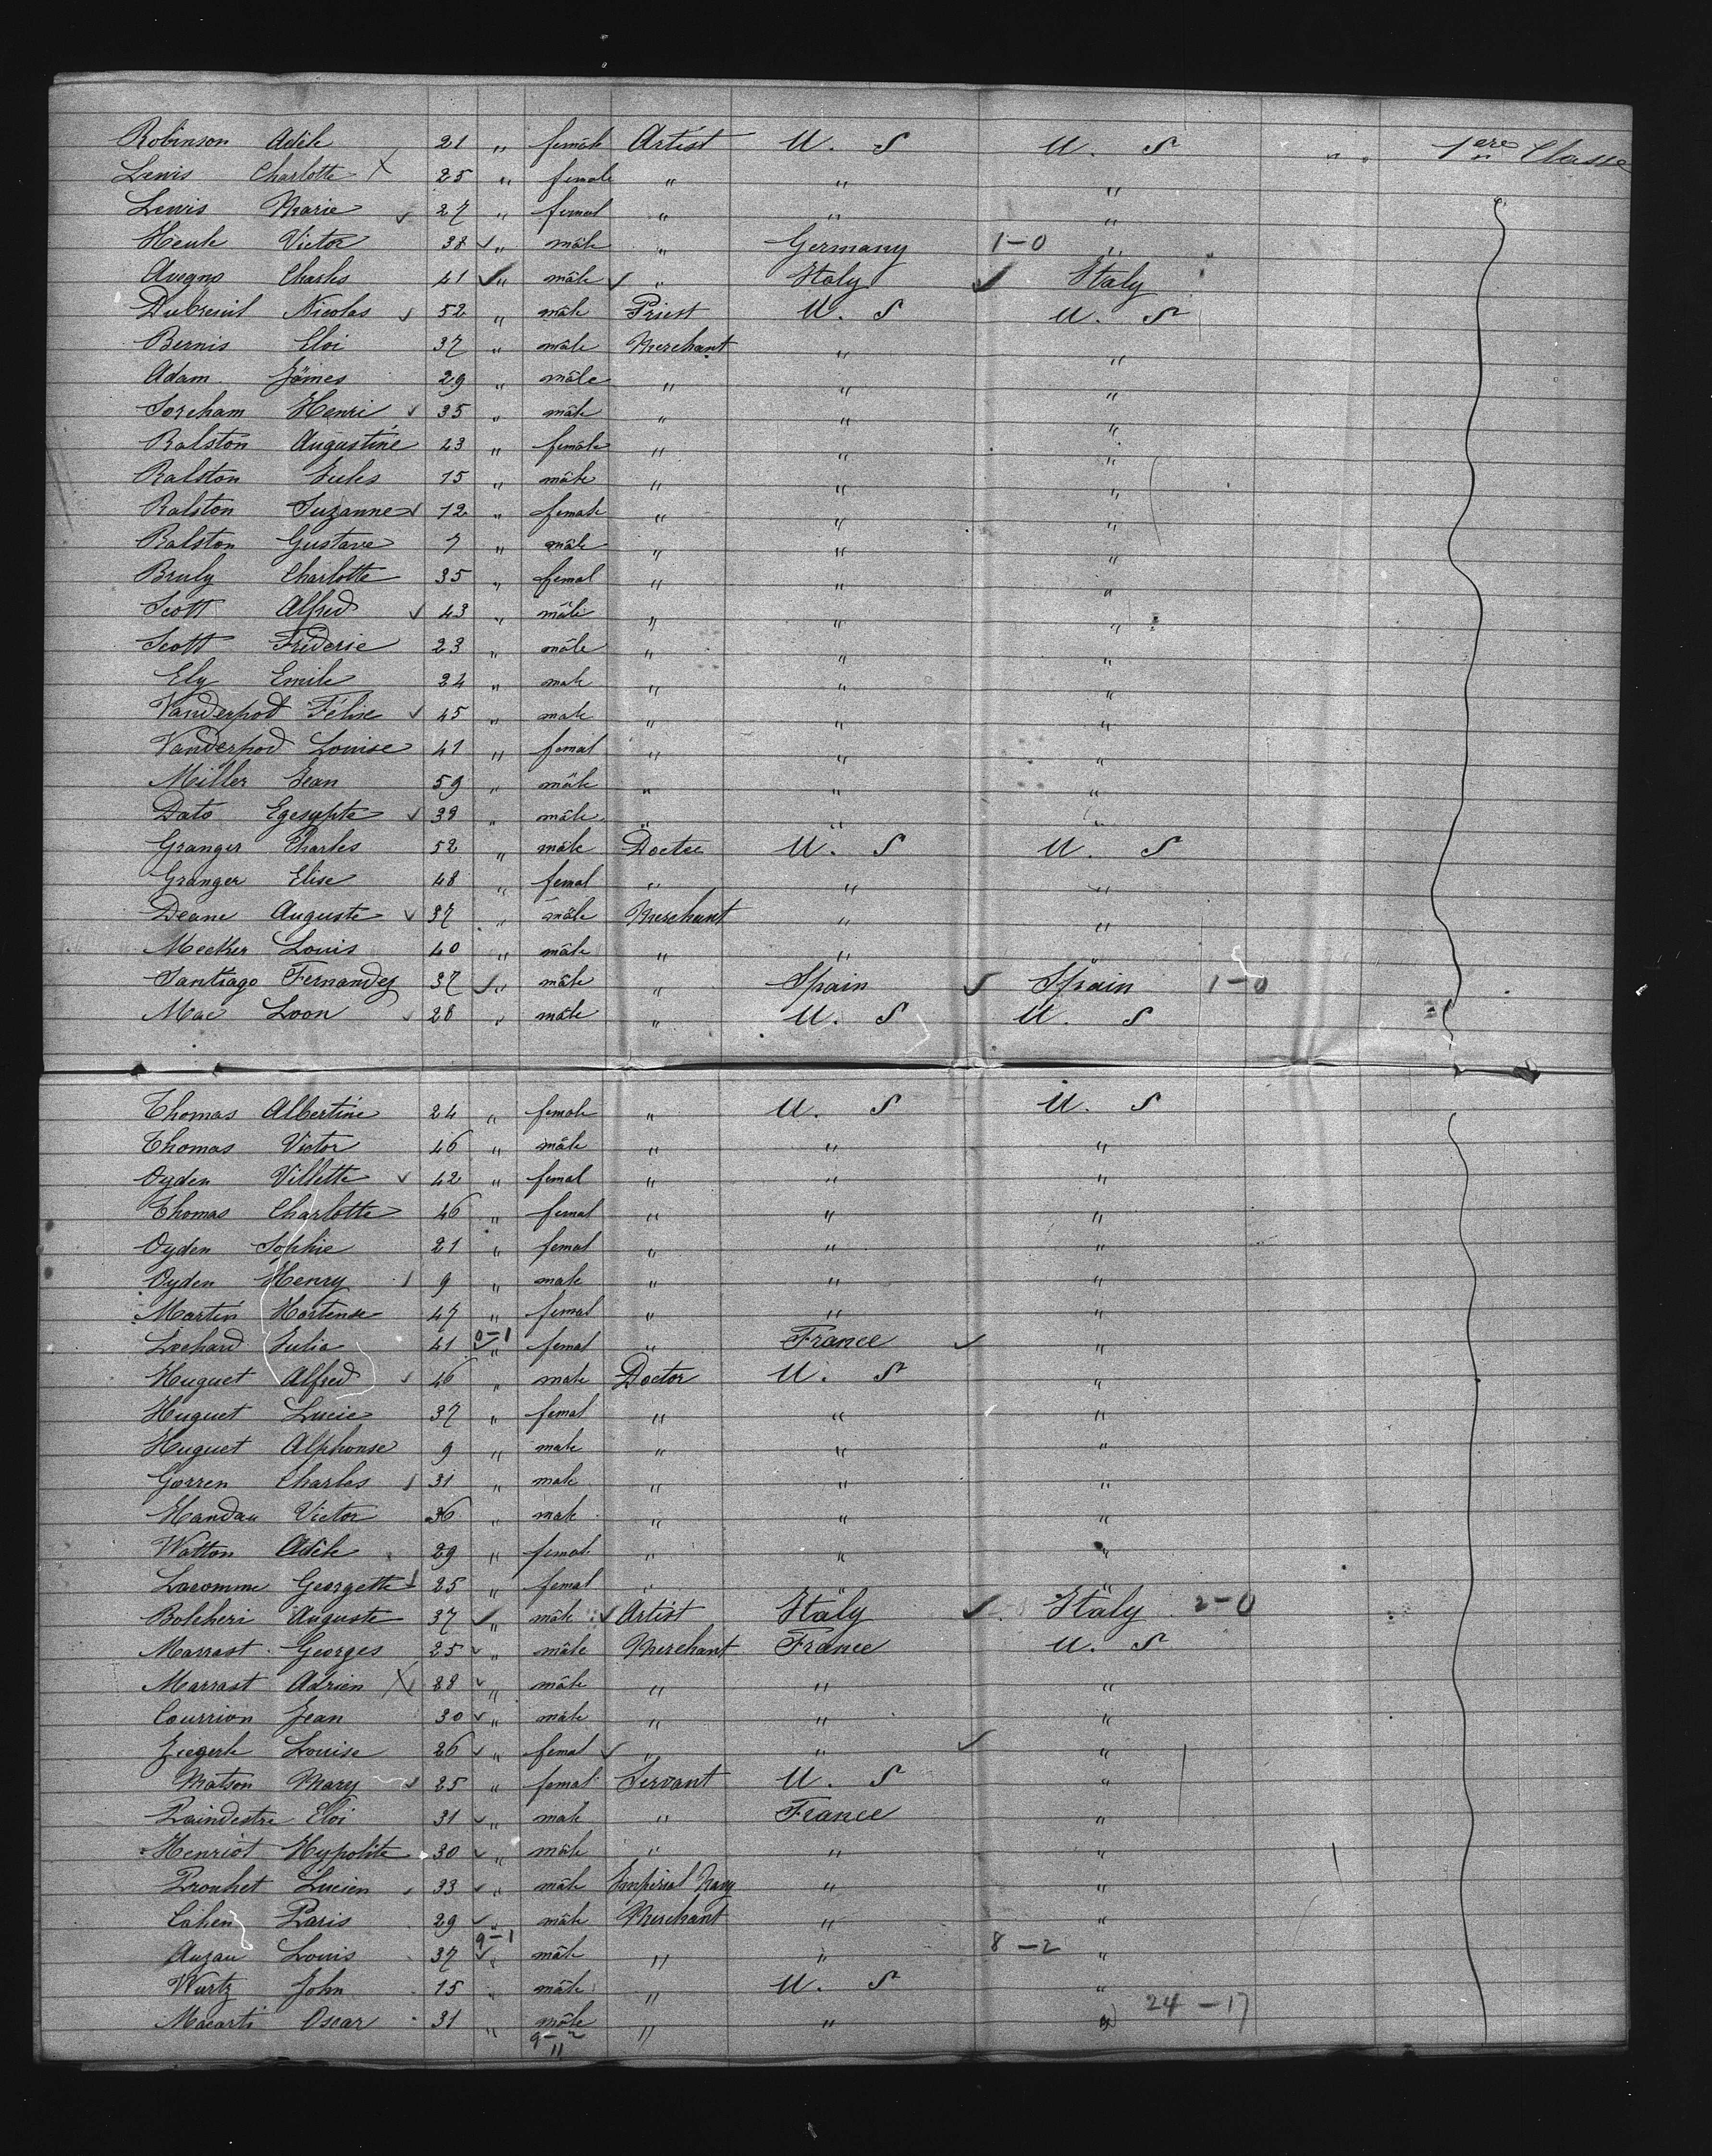 Robinson Adèle 21 " femâle Artist U. S U. S " " 1ere Classe
Lewis Charlotte X 25 " female " " "
Lewis Marie ✓ 27 " femal " " "
Henle Victor 38 ✓ " mâle " Germany 1-0 "
Avegno Charles 41 ✓ " mâle ✓ " Italy ✓ Italy
Dubreuil Nicolas ✓ 52 " mâle Priest U. S U. S
Bernis Eloi 37 " mâle Merchant " "
Adam James 29 " mâle " " "
Soreham Henri ✓ 35 " mâle " " "
Ralston Augustine 43 " femâle " " "
Ralston Jules 15 " mâle " " "
Ralston Suzanne ✓ 12 " female " " "
Ralston Gustave 7 " mâle " " "
Bruly Charlotte 35 " femal " " "
Scott Alfred ✓ 43 " mâle " " "
Scott Fréderic 23 " mâle " " "
Ely Emile 24 " male " " "
Vanderpod Félix ✓ 45 " male " " "
Vanderpod Louise 41 " femal " " "
Miller Jean 59 " mâle " " "
Dato Egesypte ✓ 39 " mâle " " "
Granger Charles 52 " mâle Docteu U. S U. S
Granger Elise 48 " femal " " "
Deane Auguste ✓ 37 " mâle Merchant " "
Mecker Louis 40 " mâle " " "
Santiago Fernandez 37 ✓ " mâle " Spain ✓ Spain 1-0
Mac Loon ✓ 28 " mâle " U. S U. S
Thomas Albertine 24 " female " U. S U. S
Thomas Victor 46 " mâle " " "
Oyden Villette ✓ 42 " femal " " "
Thomas Charlotte 46 " femal " " "
Oyden Sophie 21 " femal " " "
Oyden Henry ✓ 9 " male " " "
Martin Hortense 47 " femal " " "
Lochard Julia 41 0-1 ✓ " femal " France ✓ "
Huguet Alfred ✓ 46 " male Doctor U. S "
Huguet Lucie 37 " femal " " "
Huguet Alphonse 9 " male " " "
Gorren Charles ✓ 31 " male " " "
Handau Victor 36 " male " " "
Watton Adèle 29 " femal " " "
Lacomme Georgette ✓ 25 " femal " " "
Bolcheri Auguste 37 ✓ " mâle ✓ Artist Italy ✓ Italy 2-0
Marrast Georges 25 ✓ " mâle Merchant France U. S
Marrast Adrien X 28 ✓ " mâle " " "
Courrion Jean 30 ✓ " mâle " " "
Ziegerle Louise 26 ✓ " femal ✓ " " ✓ "
Matson Mary ✓ 25 " femal Servant U. S "
Raindestre Eloi 31 ✓ " male " France "
Henriot Hypolite 30 ✓ " mâle " " "
Prouhet Lucien 33 ✓ " mâle Imperial Navy " "
Cahen Paris 29 ✓ " mâle Merchant " "
Auzau Louis 37 9-1 ✓ " mâle " " 8-2 "
Wurtz John 15 " mâle " U. S "
Macarti Oscar 31 " mâle " " " 24-17
9-2
11